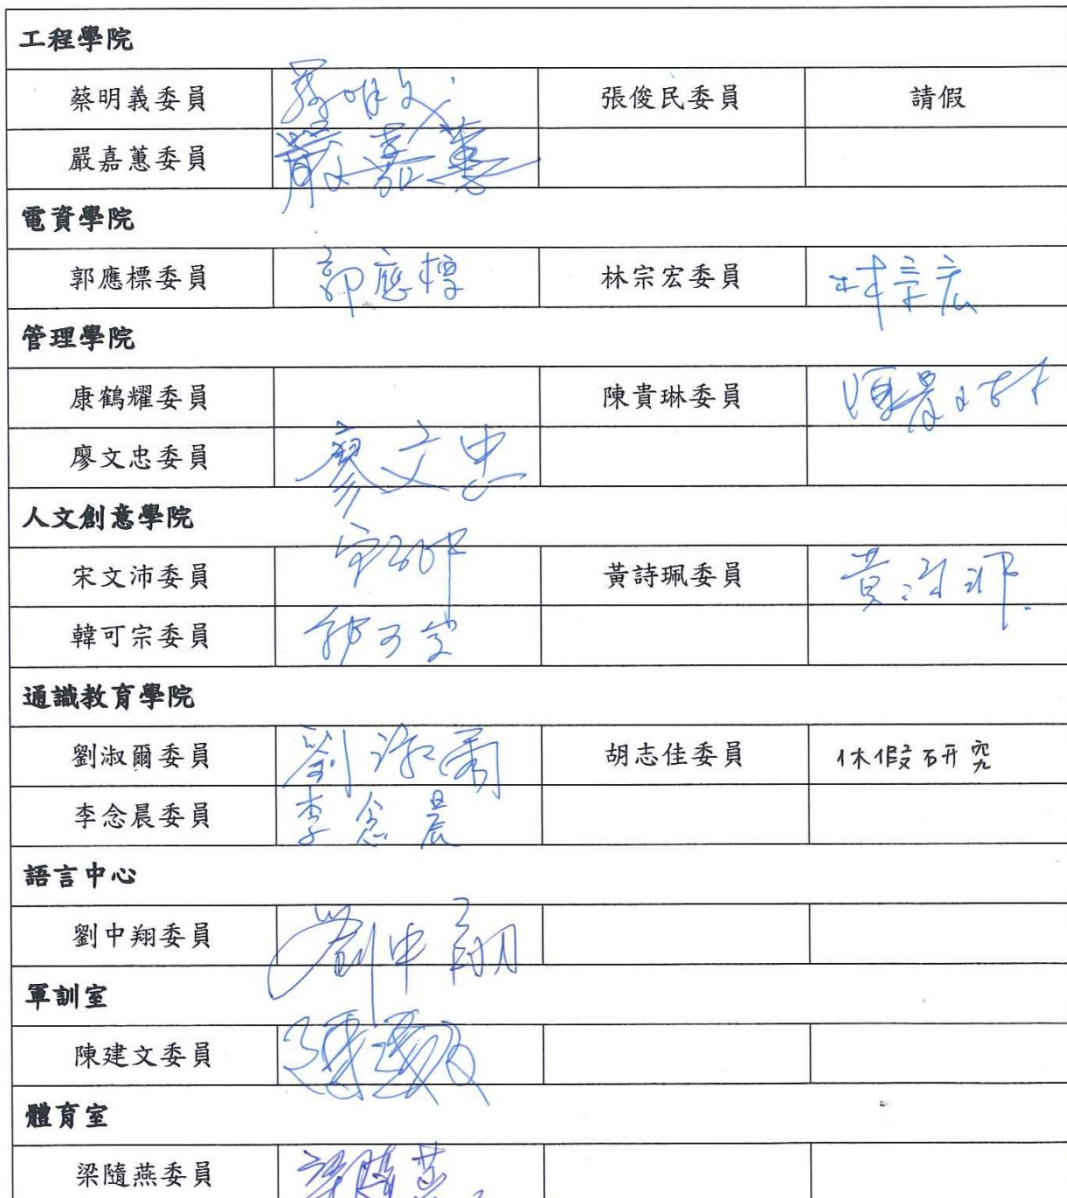 工程學院
蔡明義委員 張俊民委員 請假
嚴嘉蕙委員 嚴嘉蕙
電資學院
郭應標委員 郭應標 林宗宏委員 林宗宏
管理學院
康鶴耀委員 陳貴琳委員
廖文忠委員 廖文忠
人文創意學院
宋文沛委員 黃詩珮委員
韓可宗委員
通識教育學院
劉淑爾委員 劉淑爾 胡志佳委員 休假研究
李念晨委員 李念晨
語言中心
劉中翔委員 劉中翔
軍訓室
陳建文委員
體育室
梁隨燕委員 梁隨燕